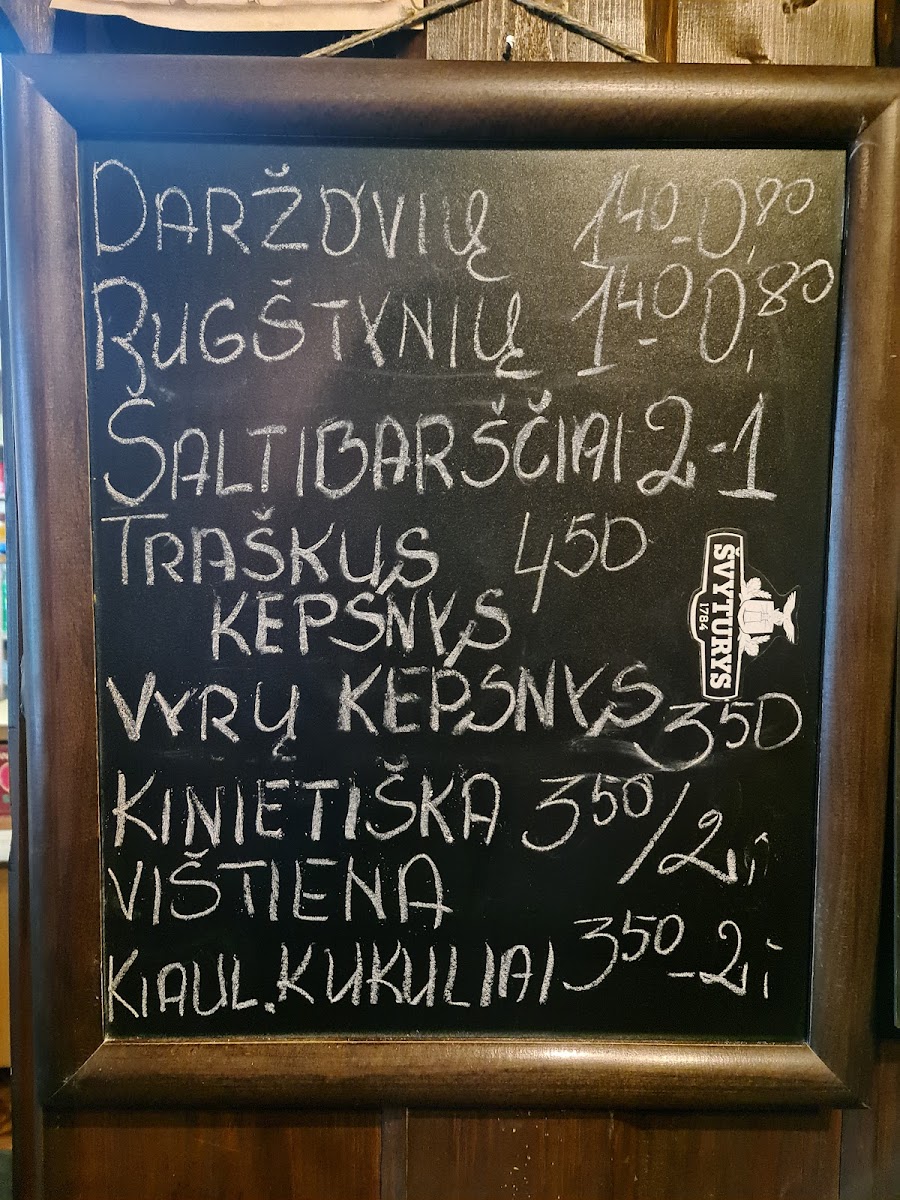 DARŽOVIŲ 1 40 - 0,80
RUGŠTYNIŲ 1 40 - 0,80
ŠALTIBARŠČIAI 2 - 1
TRAŠKUS 4 50
KEPSNYS
VYRŲ KEPSNYS 3 50
KINIETIŠKA 3 50 / 2,-
VIŠTIENA
KIAUL. KUKULIAI 3 50 - 2,-
ŠVYTURYS
1784